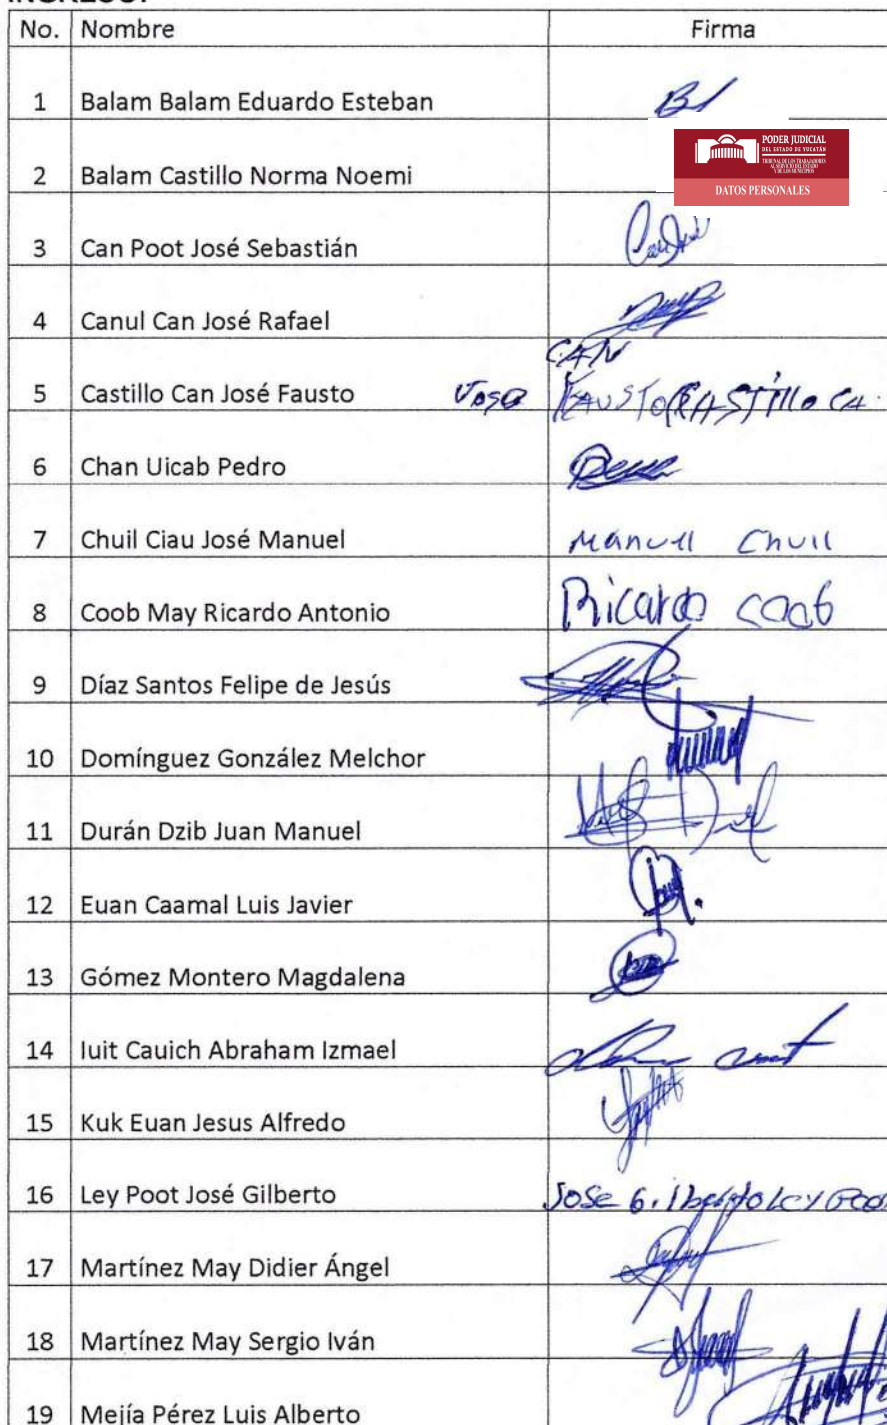 INGRESO:
No. Nombre Firma
1 Balam Balam Eduardo Esteban
PODER JUDICIAL
DEL ESTADO DE YUCATÁN
TRIBUNAL DE LOS TRABAJADORES
AL SERVICIO DEL ESTADO
Y DE LOS MUNICIPIOS
DATOS PERSONALES
2 Balam Castillo Norma Noemi
3 Can Poot José Sebastián
4 Canul Can José Rafael
CAN
5 Castillo Can José Fausto JOSE FAUSTO CASTILLO CA
6 Chan Uicab Pedro
7 Chuil Ciau José Manuel Manuel Chuil
8 Coob May Ricardo Antonio Ricardo Coob
9 Díaz Santos Felipe de Jesús
10 Domínguez González Melchor
11 Durán Dzib Juan Manuel
12 Euan Caamal Luis Javier
13 Gómez Montero Magdalena
14 Iuit Cauich Abraham Izmael
15 Kuk Euan Jesus Alfredo
16 Ley Poot José Gilberto Jose Gilberto Ley Poot
17 Martínez May Didier Ángel
18 Martínez May Sergio Iván
19 Mejía Pérez Luis Alberto